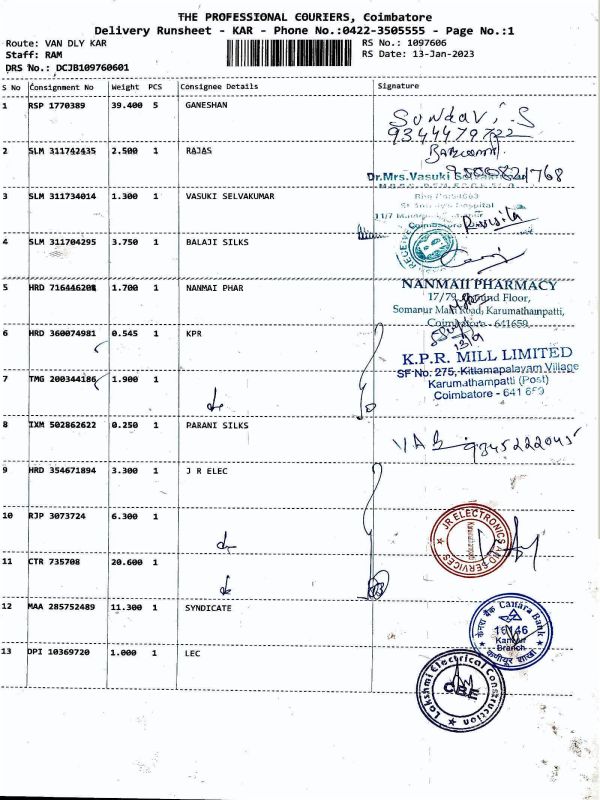 THE PROFESSIONAL COURIERS, Coimbatore
Delivery Runsheet - KAR - Phone No.:0422-3505555 - Page No.:1
Route: VAN DLY KAR RS No.: 1097606
Staff: RAM RS Date: 13-Jan-2023
DRS No.: DCJB109760601
S No Consignment No Weight PCS Consignee Details Signature
1 RSP 1770389 39.400 5 GANESHAN
Sundar. S
9344479722
2 SLM 311742435 2.500 1 RAJAS
Dr.Mrs.Vasuki Selvakumar
3 SLM 311734014 1.300 1 VASUKI SELVAKUMAR
Hospital
Coimbatore
4 SLM 311704295 3.750 1 BALAJI SILKS
RECEIVED
5 HRD 716446208 1.700 1 NANMAI PHAR
NANMAII PHARMACY
17/79, Ground Floor,
Somanur Main Road, Karumathampatti,
Coimbatore - 641659.
6 HRD 360074981 0.545 1 KPR
K.P.R. MILL LIMITED
SF No: 275, Kittampalayam Village
Karumathampatti (Post)
Coimbatore - 641 659
7 TMG 200344186 1.900 1
do
8 IXM 502862622 0.250 1 PARANI SILKS
9345222045
9 HRD 354671894 3.300 1 J R ELEC
10 RJP 3073724 6.300 1
JR ELECTRONICS AND SERVICES
do
11 CTR 735708 20.600 1
do
12 MAA 285752489 11.300 1 SYNDICATE
केनरा बैंक Canara Bank
16146
Kaniyur
Branch
कणीयूर शाखा
13 DPI 10369720 1.000 1 LEC
Lakshmi Electrical Construction
CBE